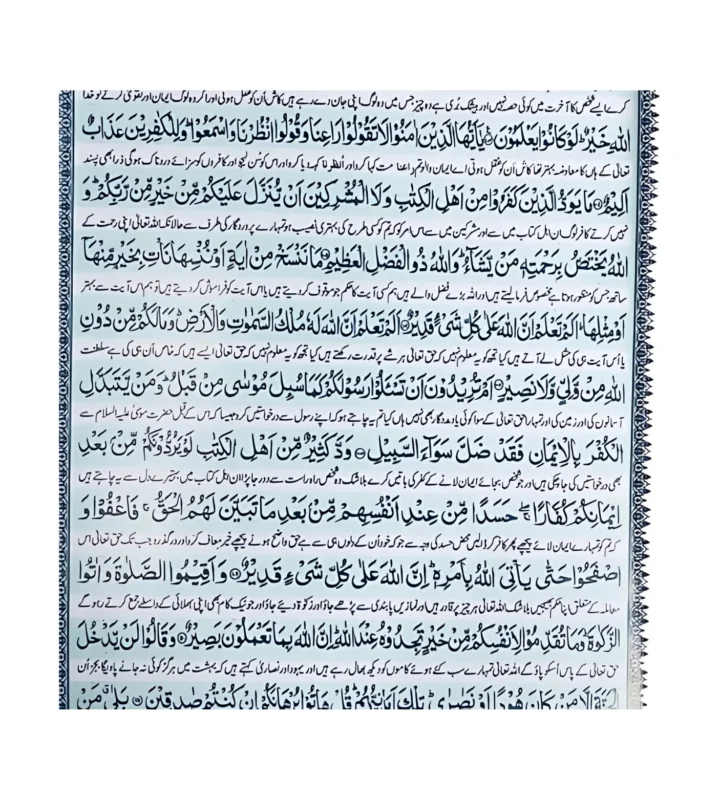 کے ایسے شخص کا آخرت میں کوئی حصہ نہیں اور بیشک بُری ہے وہ چیز جس میں وہ لوگ اپنی جان دے رہے ہیں کاش اُن کو عقل ہوتی اور اگر وہ لوگ ایمان اور تقویٰ کرتے تو خدا
اللهِ خَيْرٌ ؕ لَوْ كَانُوْا يَعْلَمُوْنَ يٰۤاَيُّهَا الَّذِيْنَ اٰمَنُوْا لَا تَقُوْلُوْا رَاعِنَا وَقُوْلُوا انْظُرْنَا وَاسْمَعُوْا ؕ وَلِلْكٰفِرِيْنَ عَذَابٌ
تعالیٰ کے ہاں کا معاوضہ بہتر تھا کاش اُن کو عقل ہوتی اے ایمان والو تم راعنا مت کہا کرو اور اُنظرنا کہہ دیا کرو اور اس کو سُن لیجو اور کافروں کو سزائے دردناک ہوگی ذرا بھی پسند
اَلِيْمٌ مَا يَوَدُّ الَّذِيْنَ كَفَرُوْا مِنْ اَهْلِ الْكِتٰبِ وَلَا الْمُشْرِكِيْنَ اَنْ يُّنَزَّلَ عَلَيْكُمْ مِّنْ خَيْرٍ مِّنْ رَّبِّكُمْ ؕ وَ
نہیں کرتے کافر لوگ ان اہل کتاب میں سے اور مشرکین میں سے اس امر کو کہ تم کو کسی طرح کی بہتری نصیب ہو تمہارے پروردگار کی طرف سے حالانکہ اللہ تعالیٰ اپنی رحمت کے
اللهُ يَخْتَصُّ بِرَحْمَتِهٖ مَنْ يَّشَآءُ ؕ وَاللهُ ذُو الْفَضْلِ الْعَظِيْمِ مَا نَنْسَخْ مِنْ اٰيَةٍ اَوْ نُنْسِهَا نَاْتِ بِخَيْرٍ مِّنْهَاۤ
ساتھ جس کو منظور ہوتا ہے مخصوص فرما لیتے ہیں اور اللہ بڑے فضل والے ہیں ہم کسی آیت کا حکم جو موقوف کر دیتے ہیں یا اس آیت کو فراموش کر دیتے ہیں تو ہم اس آیت سے بہتر
اَوْ مِثْلِهَا ؕ اَلَمْ تَعْلَمْ اَنَّ اللهَ عَلٰى كُلِّ شَىْءٍ قَدِيْرٌ اَلَمْ تَعْلَمْ اَنَّ اللهَ لَهٗ مُلْكُ السَّمٰوٰتِ وَالْاَرْضِ ؕ وَمَا لَكُمْ مِّنْ دُوْنِ
یا اُس آیت ہی کی مثل لے آتے ہیں کیا تجھ کو یہ معلوم نہیں کہ حق تعالیٰ ہر شے پر قدرت رکھتے ہیں کیا تجھ کو یہ معلوم نہیں کہ حق تعالیٰ ایسے ہیں کہ خاص اُن ہی کی ہے سلطنت
اللهِ مِنْ وَّلِىٍّ وَّلَا نَصِيْرٍ اَمْ تُرِيْدُوْنَ اَنْ تَسْـَٔلُوْا رَسُوْلَكُمْ كَمَا سُئِلَ مُوْسٰى مِنْ قَبْلُ ؕ وَمَنْ يَّتَبَدَّلِ
آسمانوں کی اور زمین کی اور تمہارا حق تعالیٰ کے سوا کوئی یار و مددگار بھی نہیں ہاں کیا تم یہ چاہتے ہو کہ اپنے رسول سے درخواستیں کرو جیسا کہ اس کے قبل حضرت موسیٰ علیہ السلام سے
الْكُفْرَ بِالْاِيْمَانِ فَقَدْ ضَلَّ سَوَآءَ السَّبِيْلِ وَدَّ كَثِيْرٌ مِّنْ اَهْلِ الْكِتٰبِ لَوْ يَرُدُّوْنَكُمْ مِّنْۢ بَعْدِ
بھی درخواستیں کی جا چکی ہیں اور جو شخص بجائے ایمان لانے کے کفر کی باتیں کرے بلاشک وہ شخص راہ راست سے دور جا پڑا ان اہل کتاب میں بہتیرے دل سے یہ چاہتے ہیں
اِيْمَانِكُمْ كُفَّارًا ۖۚ حَسَدًا مِّنْ عِنْدِ اَنْفُسِهِمْ مِّنْۢ بَعْدِ مَا تَبَيَّنَ لَهُمُ الْحَقُّ ۚ فَاعْفُوْا وَ
کہ تم کو تمہارے ایمان لائے پیچھے پھر کافر کر ڈالیں محض حسد کی وجہ سے جو کہ خود اُن کے دلوں ہی سے ہے حق واضح ہونے پیچھے خیر معاف کرو اور درگذرو جب تک حق تعالیٰ اس
اصْفَحُوْا حَتّٰى يَاْتِىَ اللهُ بِاَمْرِهٖ ؕ اِنَّ اللهَ عَلٰى كُلِّ شَىْءٍ قَدِيْرٌ وَاَقِيْمُوا الصَّلٰوةَ وَاٰتُوا
معاملہ کے متعلق اپنا حکم بھیجیں بلاشک اللہ تعالیٰ ہر چیز پر قادر ہیں اور نمازیں پابندی سے پڑھے جاؤ اور زکوٰۃ دیئے جاؤ اور جو نیک کام بھی اپنی بھلائی کے واسطے جمع کرتے رہو گے
الزَّكٰوةَ ؕ وَمَا تُقَدِّمُوْا لِاَنْفُسِكُمْ مِّنْ خَيْرٍ تَجِدُوْهُ عِنْدَ اللهِ ؕ اِنَّ اللهَ بِمَا تَعْمَلُوْنَ بَصِيْرٌ وَقَالُوْا لَنْ يَّدْخُلَ
حق تعالیٰ کے پاس اُسکو پاؤ گے اللہ تعالیٰ تمہارے سب کئے ہوئے کاموں کو دیکھ بھال رہے ہیں اور یہود اور نصاریٰ کہتے ہیں کہ بہشت میں ہرگز کوئی نہ جانے پاویگا بجز اُن
الْجَنَّةَ اِلَّا مَنْ كَانَ هُوْدًا اَوْ نَصٰرٰى ؕ تِلْكَ اَمَانِيُّهُمْ ؕ قُلْ هَاتُوْا بُرْهَانَكُمْ اِنْ كُنْتُمْ صٰدِقِيْنَ بَلٰى ۗ مَنْ